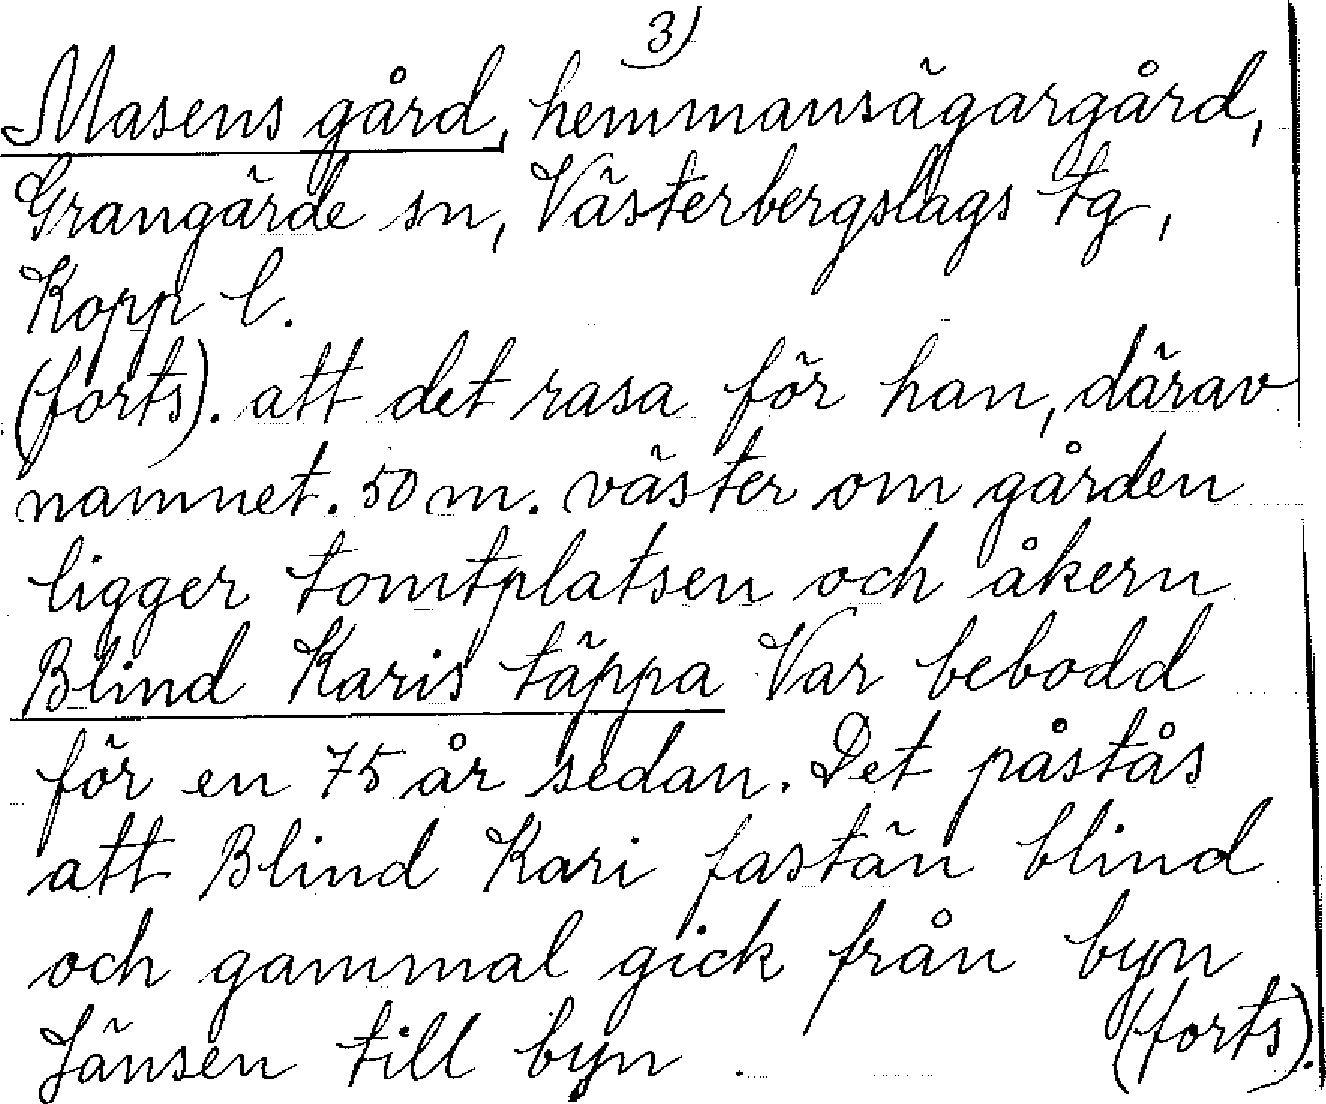 3)
Masens gård, hemmansägargård,
Grangärde sn, Västerbergslags tg,
Kopp l.
(forts). att det rasa för han, därav
namnet. 50 m. väster om gården
ligger tomtplatsen och åkern
Blind Karis täppa Var bebodd
för en 75 år sedan. Det påstås
att Blind Kari fastän blind
och gammal gick från byn
Jänsen till byn. (forts).